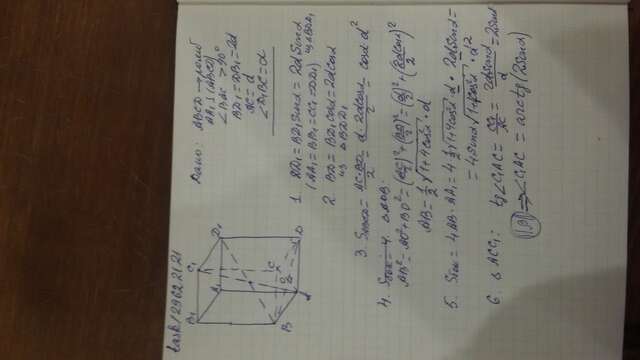 task/29622121
B₁ C₁
A₁ D₁
B C
O
A D
Дано: ABCD — ромб
AA₁ ⊥ (ABCD)
∠BAC > 90°
BD₁ = DB₁ = 2d
AC = d
∠D₁BC = α
1. DD₁ = BD₁ sinα = 2d sinα
(AA₁ = BB₁ = CC₁ = DD₁) из ΔBDD₁
2. BD = BD₁ cosα = 2d cosα
из ΔBDD₁
3. S = AC·BD/2 = d·2d cosα/2 = cosα·d²
4. ΔAOB:
AB² = AO² + BO² = (AC/2)² + (BD/2)² = (d/2)² + (2d cosα/2)²
AB = 1/2 √1+4cos²α · d
5. Sбок = 4AB·AA₁ = 4·1/2 √1+4cos²α · d · 2d sinα =
= 4 sinα √1+4cos²α · d²
6. ΔACC₁: tg∠C₁AC = CC₁/AC = 2d sinα/d = 2 sinα
⇒ ∠C₁AC = arctg(2 sinα)